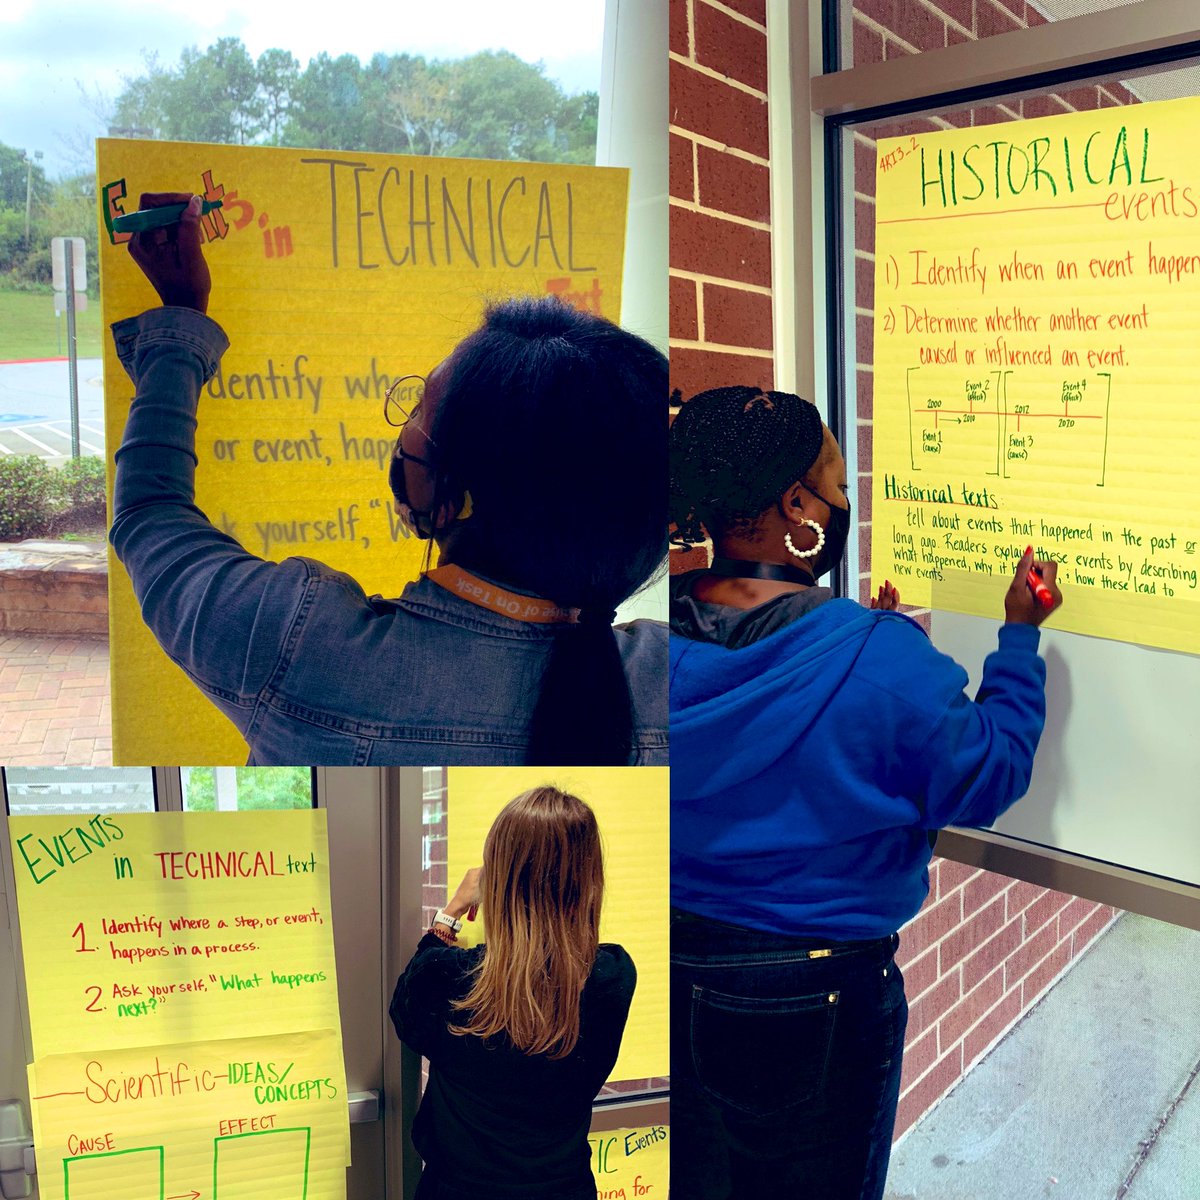 in TECHNICAL
Text
dentify
or event,
yourself, "
of On Task
4RI3_2
HISTORICAL
events
1) Identify when an event happen
2) Determine whether another event
caused or influenced an event.
Event 2 Event 4
(effect) (effect)
2000 2012
2010 2020
Event 1 Event 3
(cause) (cause)
Historical texts:
tell about events that happened in the past or
long ago. Readers explain these events by describing
what happened, why it & how these lead to
new events.
EVENTS
in TECHNICAL text
1. Identify where a step, or event,
happens in a process.
2. Ask yourself, "What happens
next?"
Scientific IDEAS/
CONCEPTS
CAUSE EFFECT
IC Events
for